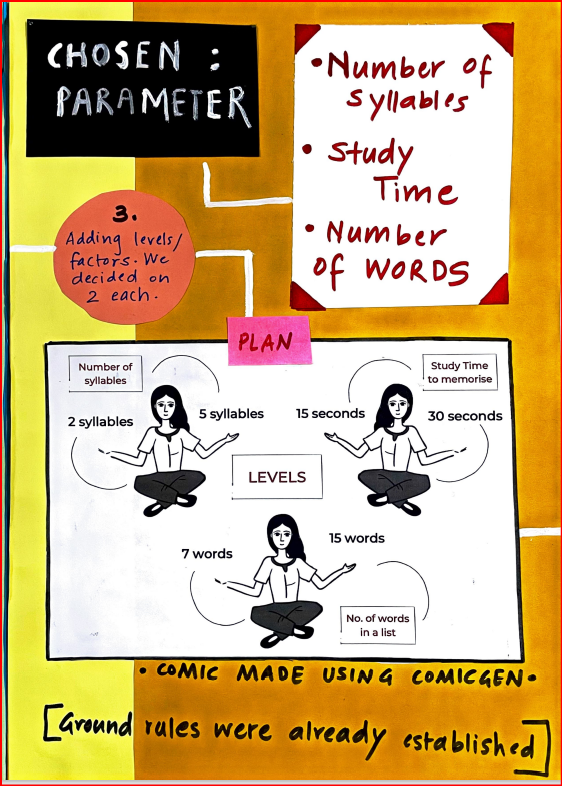 CHOSEN :
PARAMETER
• Number of
syllables
• Study
Time
• Number
of WORDS
3.
Adding levels/
factors. We
decided on
2 each.
PLAN
Number of
syllables
2 syllables
5 syllables
Study Time
to memorise
15 seconds
30 seconds
LEVELS
7 words
15 words
No. of words
in a list
• COMIC MADE USING COMICGEN •
[Ground rules were already established]